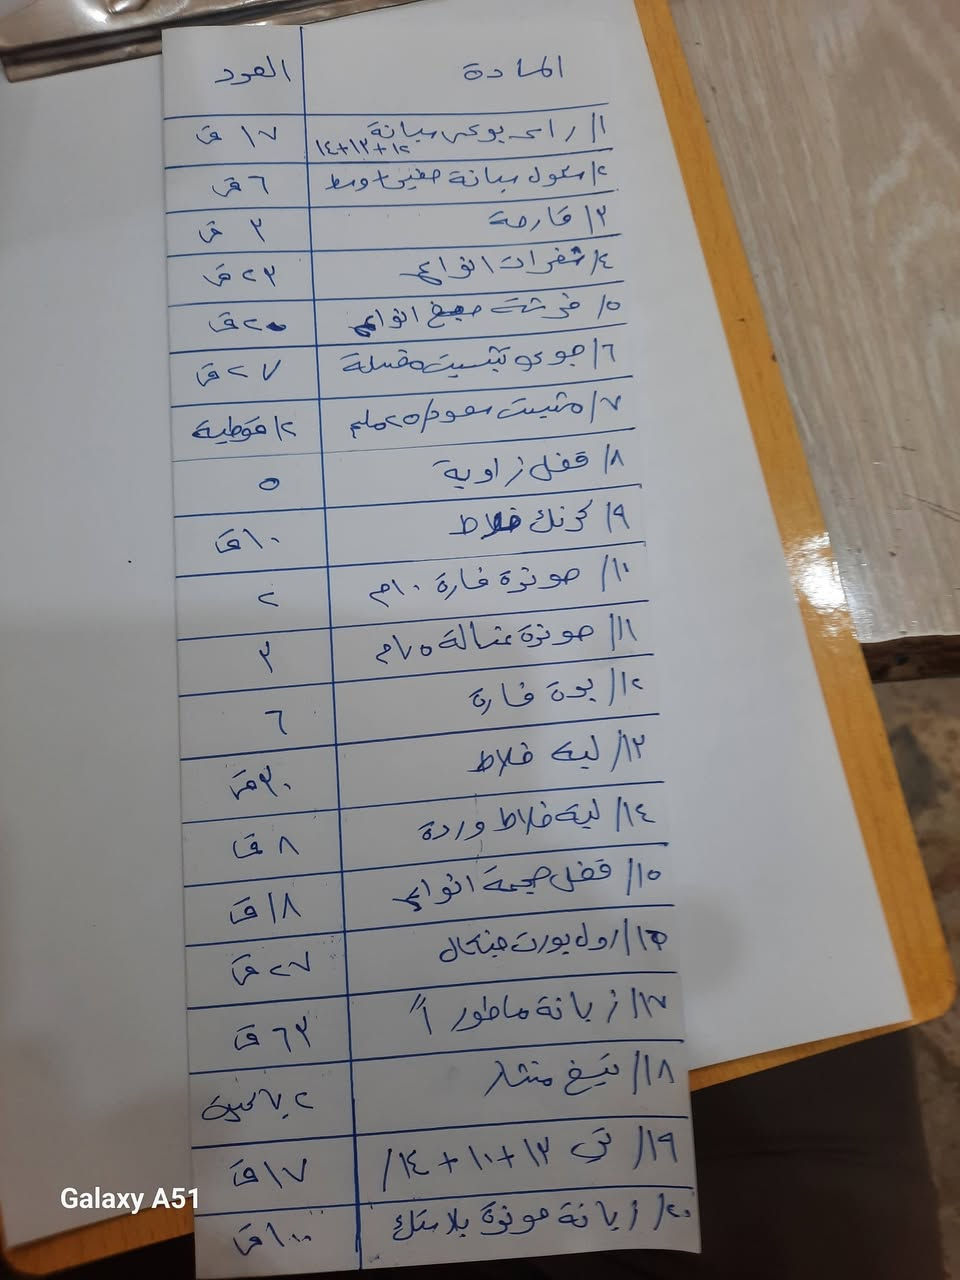 المادة العدد
١/ راس بوكس سبانة ١٧ ق
١٢+١٣+١٤
٢/ سبانة وسط ٦ ق
٣/ قارصة ٣ ق
٤/ شفرات انواع ٢٣ ق
٥/ فرشة صبغ انواع ٢٠ ق
٦/ تثبيت مغسلة ٢٧ ق
٧/ مثبت ٢٥ ملم ٢/ قوطية
٨/ قفل زاوية ٥
٩/ كرنك خلاط ١٠ ق
١٠/ صونزة فارة ١٠ م ٢
١١/ صونزة غسالة ٧٥ م ٣
١٢/ بوة فارة ٦
١٣/ ليه خلاط ٣٠ ق
١٤/ ليه خلاط وردة ٨ ق
١٥/ قفل انواع ١٨ ق
١٦/ رول بورت جنكال ٢٧ ق
١٧/ زبانة ماطور ١" ٦٣ ق
١٨/ تيغ منشار ٢ باكيت
١٩/ ١٣+١٠+١٤/ ١٧ ق
٢٠/ زبانة صونزة بلاستك ١٠٠ ق
Galaxy A51